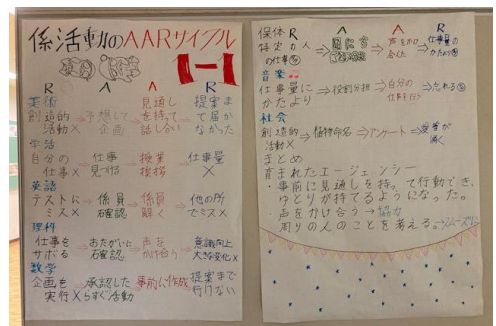 係活動のAARサイクル
1-1
R A A R
美術
創造的活動× → 予想して企画 → 見通しを持って話し合い → 提案まで届かなかった
学活
自分の仕事× → 仕事見つける → 授業挨拶 → 仕事量×
英語
テストにミス× → 係員確認 → 係員解く → 他の所でミス×
理科
仕事をサボる → おたがいに確認 → 声をかけ合う → 意識向上 大きな変化×
数学
企画を実行× → 承認したらすぐ活動 → 事前に作成 → 提案まで行けない
R A A R
保体
特定の人の仕事 → 声をかけ合った → 仕事量のかたより
音楽
仕事量にかたより → 役割分担 → 自分の仕事を行う → 忘れる
社会
創造的活動× → 植物命名 → アンケート →
まとめ
育まれたエージェンシー
・事前に見通しを持って行動でき、
ゆとりが持てるようになった。
・声をかけ合う→協力
周りの人のことを考える→スムーズに